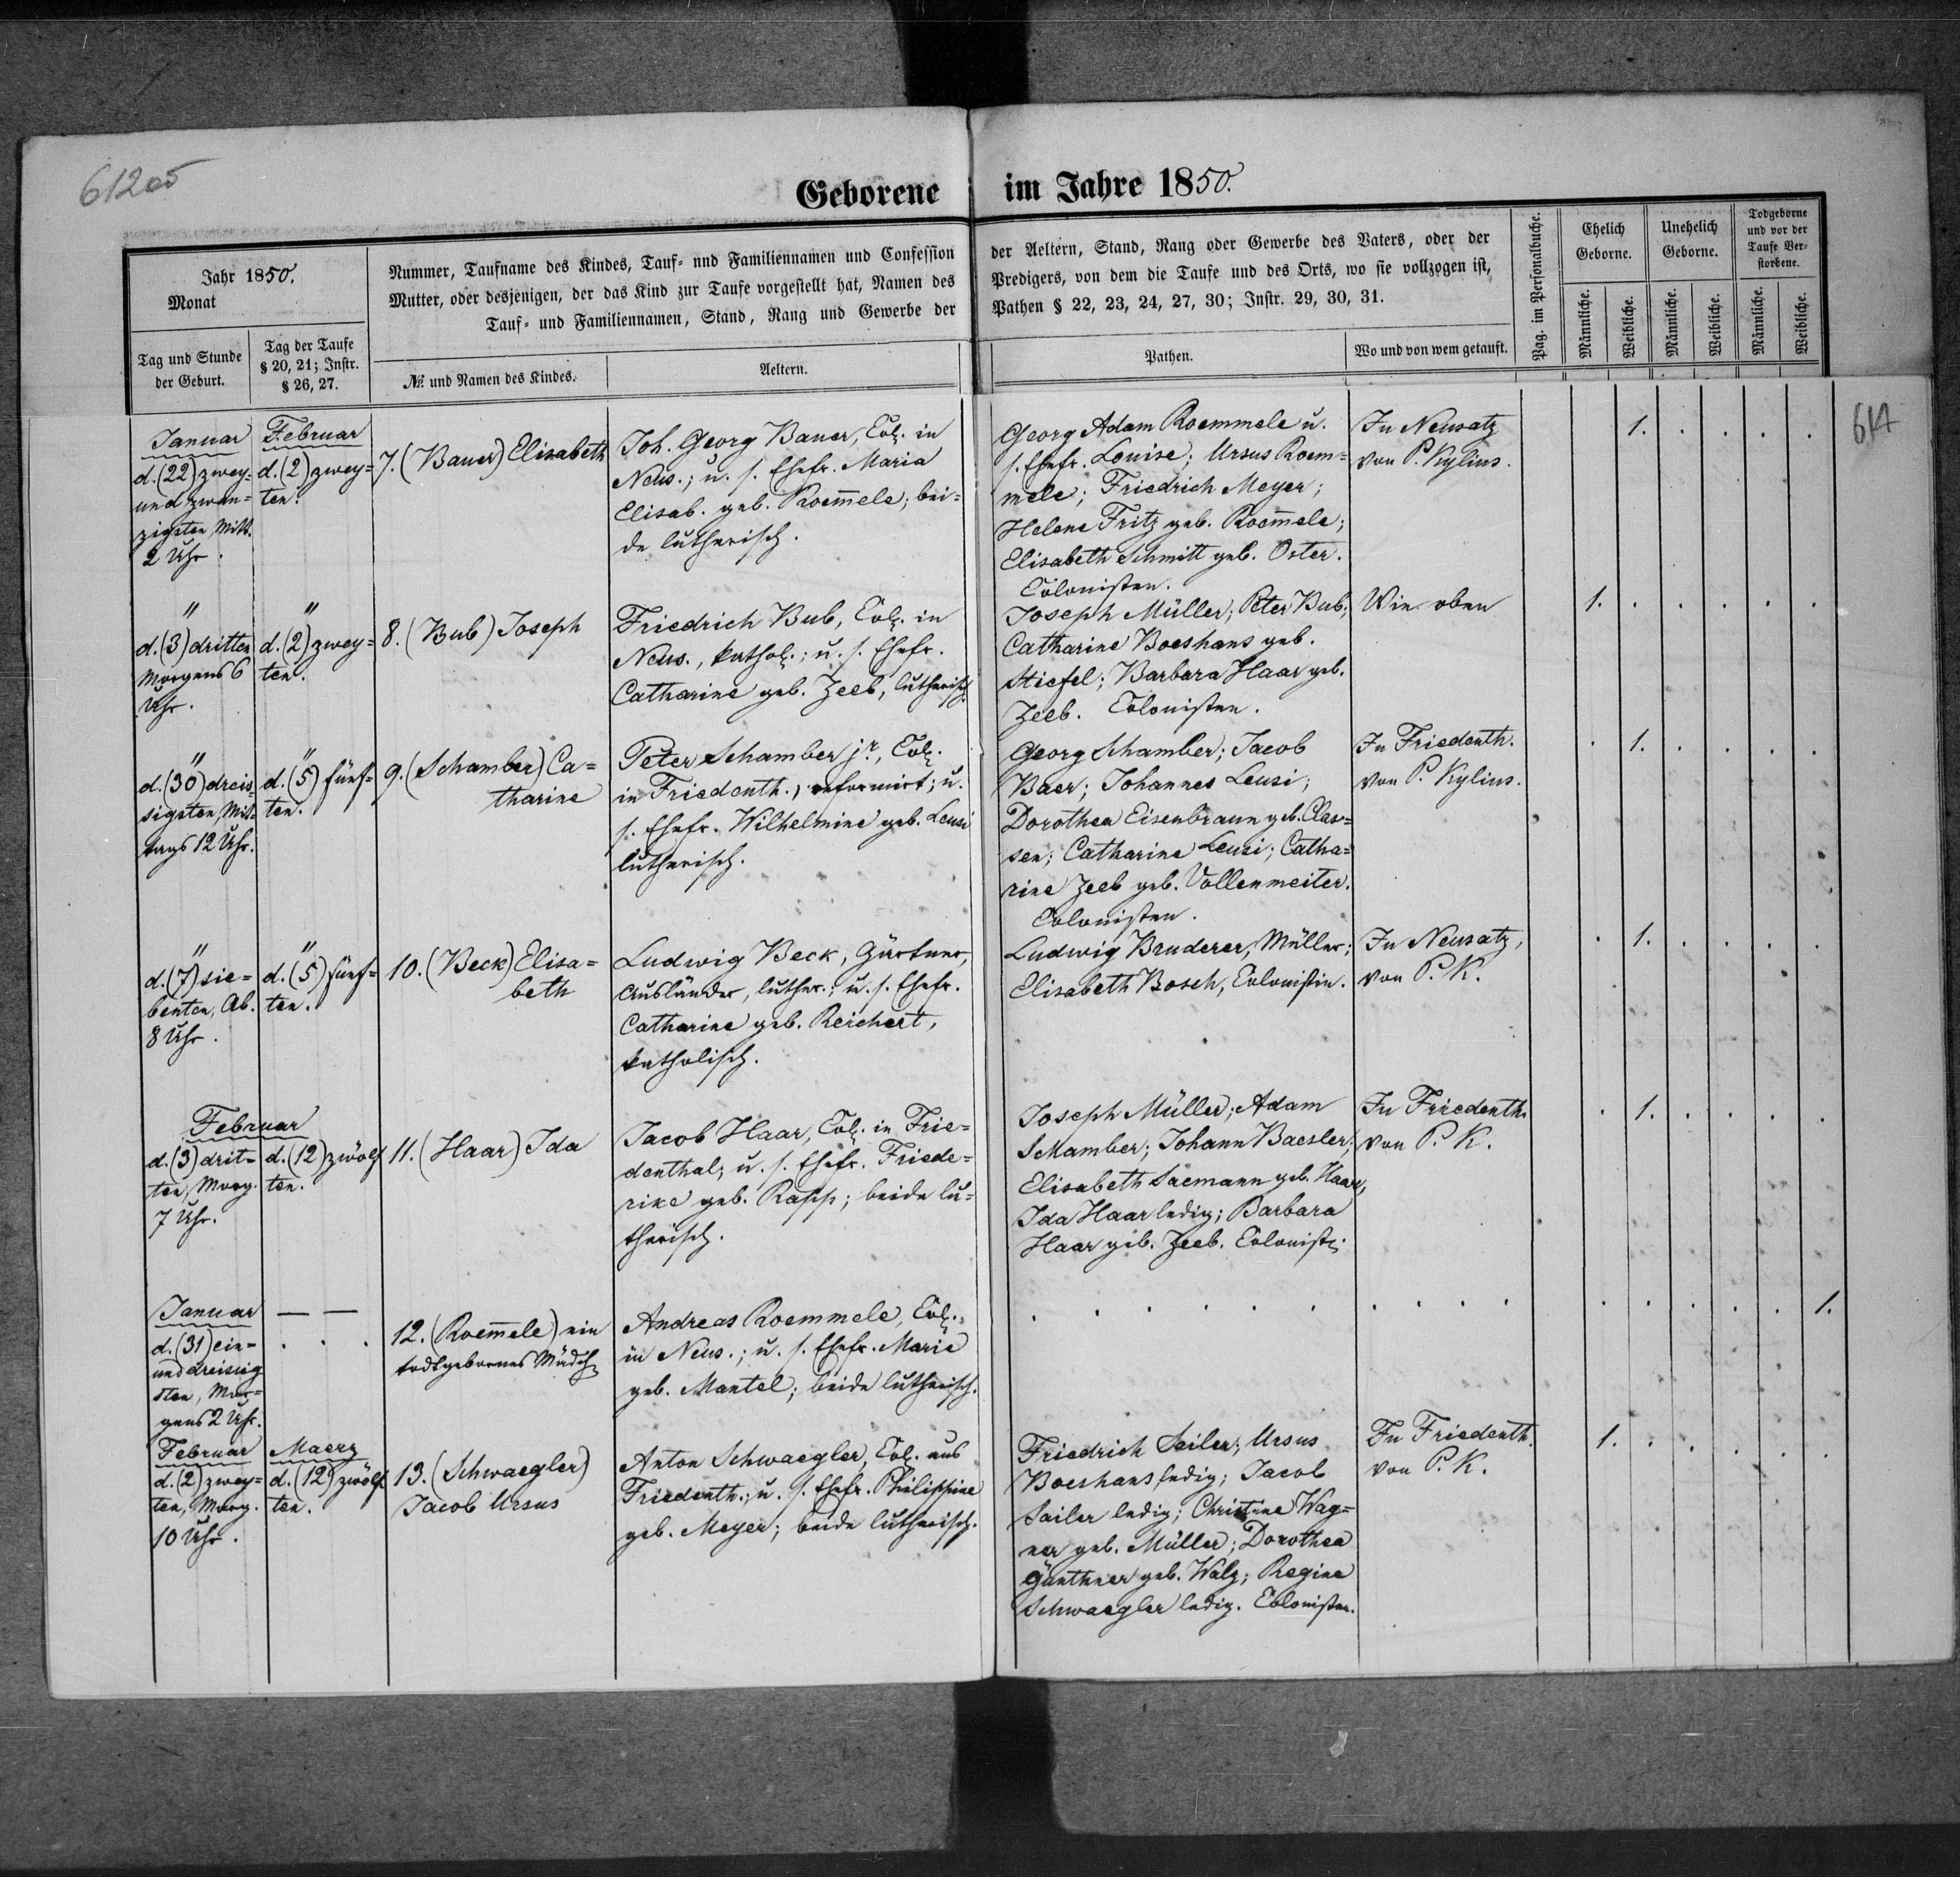 61205
Geborene im Jahre 1850.
Jahr 1850.
Monat
Tag und Stunde
der Geburt.
Tag der Taufe
§ 20, 21; Instr.
§ 26, 27.
Nummer, Taufname des Kindes, Tauf- nnd Familiennamen und Confession
Mutter, oder desjenigen, der das Kind zur Taufe vorgestellt hat, Namen des
Tauf- und Familiennamen, Stand, Rang und Gewerbe der
№. und Namen des Kindes.
Aeltern.
der Aeltern, Stand, Rang oder Gewerbe des Vaters, oder der
Predigers, von dem die Taufe und des Orts, wo sie vollzogen ist,
Pathen § 22, 23, 24, 27, 30; Instr. 29, 30, 31.
Pathen.
Wo und von wem getauft.
Pag. im Personalbuche.
Ehelich
Geborne.
Unehelich
Geborne.
Todgeborne
und vor der
Taufe Ver-
storbene.
Männliche.
Weibliche.
Männliche.
Weibliche.
Männliche.
Weibliche.
Januar
d. (22) zwey=
und zwan=
zigsten Mitt.
2 Uhr.
Februar
d. (2) zwey=
ten.
7. (Bauer) Elisabeth
Joh. Georg Bauer, Col. in
Neus.; u. s. Ehefr. Maria
Elisab. geb. Roem̄ele; bei=
de lutherisch.
Georg Adam Roemmele u.
s. Ehefr. Louise; Ursus Roem=
mele; Friedrich Meyer;
Helene Fritz geb. Roem̄ele;
Elisabeth Schmitt geb. Oster.
Colonisten.
In Neusatz
von P. Kylius.
1.
617
"
d. (3) dritten
Morgens 6
Uhr.
"
d. (2) zwey=
ten.
8. (Bub) Joseph
Friedrich Bub, Col. in
Neus., kathol.; u. s. Ehefr.
Catharine geb. Zeeb, lutherisch.
Joseph Müller; Peter Bub;
Catharine Boeshans geb.
Stiefel; Barbara Haar geb.
Zeeb. Colonisten.
Wie oben
1.
"
d. (30) dreis=
sigsten, Mit=
tags 12 Uhr.
"
d. (5) fünf=
ten.
9. (Schamber) Ca=
tharine
Peter Schamber jr., Col.
in Friedenth., reformirt; u.
s. Ehefr. Wilhelmine geb. Leusi
lutherisch.
Georg Schamber; Jacob
Baer; Johannes Leusi;
Dorothea Eisenbraun geb. Clas=
sen; Catharine Leusi; Catha=
rine Zeeb geb. Vollenmeiter.
Colonisten.
In Friedenth.
von P. Kylius.
1.
"
d. (7) sie=
benten, Ab.
8 Uhr.
"
d. (5) fünf=
ten.
10. (Beck) Elisa=
beth
Ludwig Beck, Gärtner,
Ausländer, luther.; u. s. Ehefr.
Catharine geb. Reichert,
katholisch.
Ludwig Bruderer, Müller;
Elisabeth Bosch, Colonistin.
In Neusatz,
von P. K.
1.
Februar
d. (3) drit=
ten, Morg.
7 Uhr.
d. (12) zwölf
ten.
11. (Haar) Ida
Jacob Haar, Col. in Frie=
denthal; u. s. Ehefr. Friede=
rike geb. Rapp; beide lu=
therisch.
Joseph Müller; Adam
Schamber; Johann Baesler;
Elisabeth Saemann geb. Haar;
Ida Haar ledig; Barbara
Haar geb. Zeeb. Colonist.
In Friedenth.
von P. K.
1.
Januar
d. (31) ein=
und dreissig
sten, Mor=
gens 2 Uhr.
12. (Roem̄ele) ein
todtgebornes Mädch.
Andreas Roemmele, Col.
in Neus.; u. s. Ehefr. Marie
geb. Mantel; beide lutherisch.
1.
Februar
d. (2) zwey=
ten, Morg.
10 Uhr.
Maerz
d. (12) zwölf
ten.
13. (Schwaegler)
Jacob Ursus
Anton Schwaegler, Col. aus
Friedenth.; u. s. Ehefr. Philippine
geb. Meyer; beide lutherisch.
Friedrich Sailer; Ursus
Boeshans ledig; Jacob
Sailer ledig; Christine Wag=
ner geb. Müller; Dorothea
Günthner geb. Walz; Regine
Schwaegler ledig. Colonisten.
In Friedenth.
von P. K.
1.